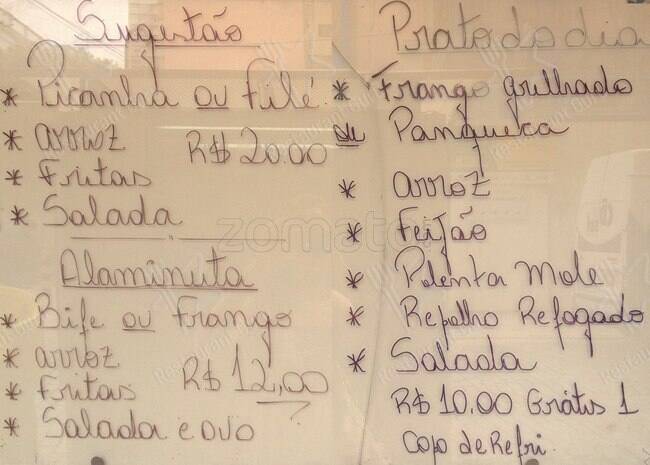 Sugestão
* Picanha ou Filé
* arroz
R$ 20.00
* Fritas
* Salada
Alaminuta
* Bife ou Frango
* arroz
R$ 12,00
* Fritas
* Salada e ovo
Prato do dia
* Frango grelhado
ou Panqueca
* arroz
* Feijão
* Polenta Mole
* Repolho Refogado
* Salada
R$ 10.00 Grátis 1
Copo de Refri.
zomato